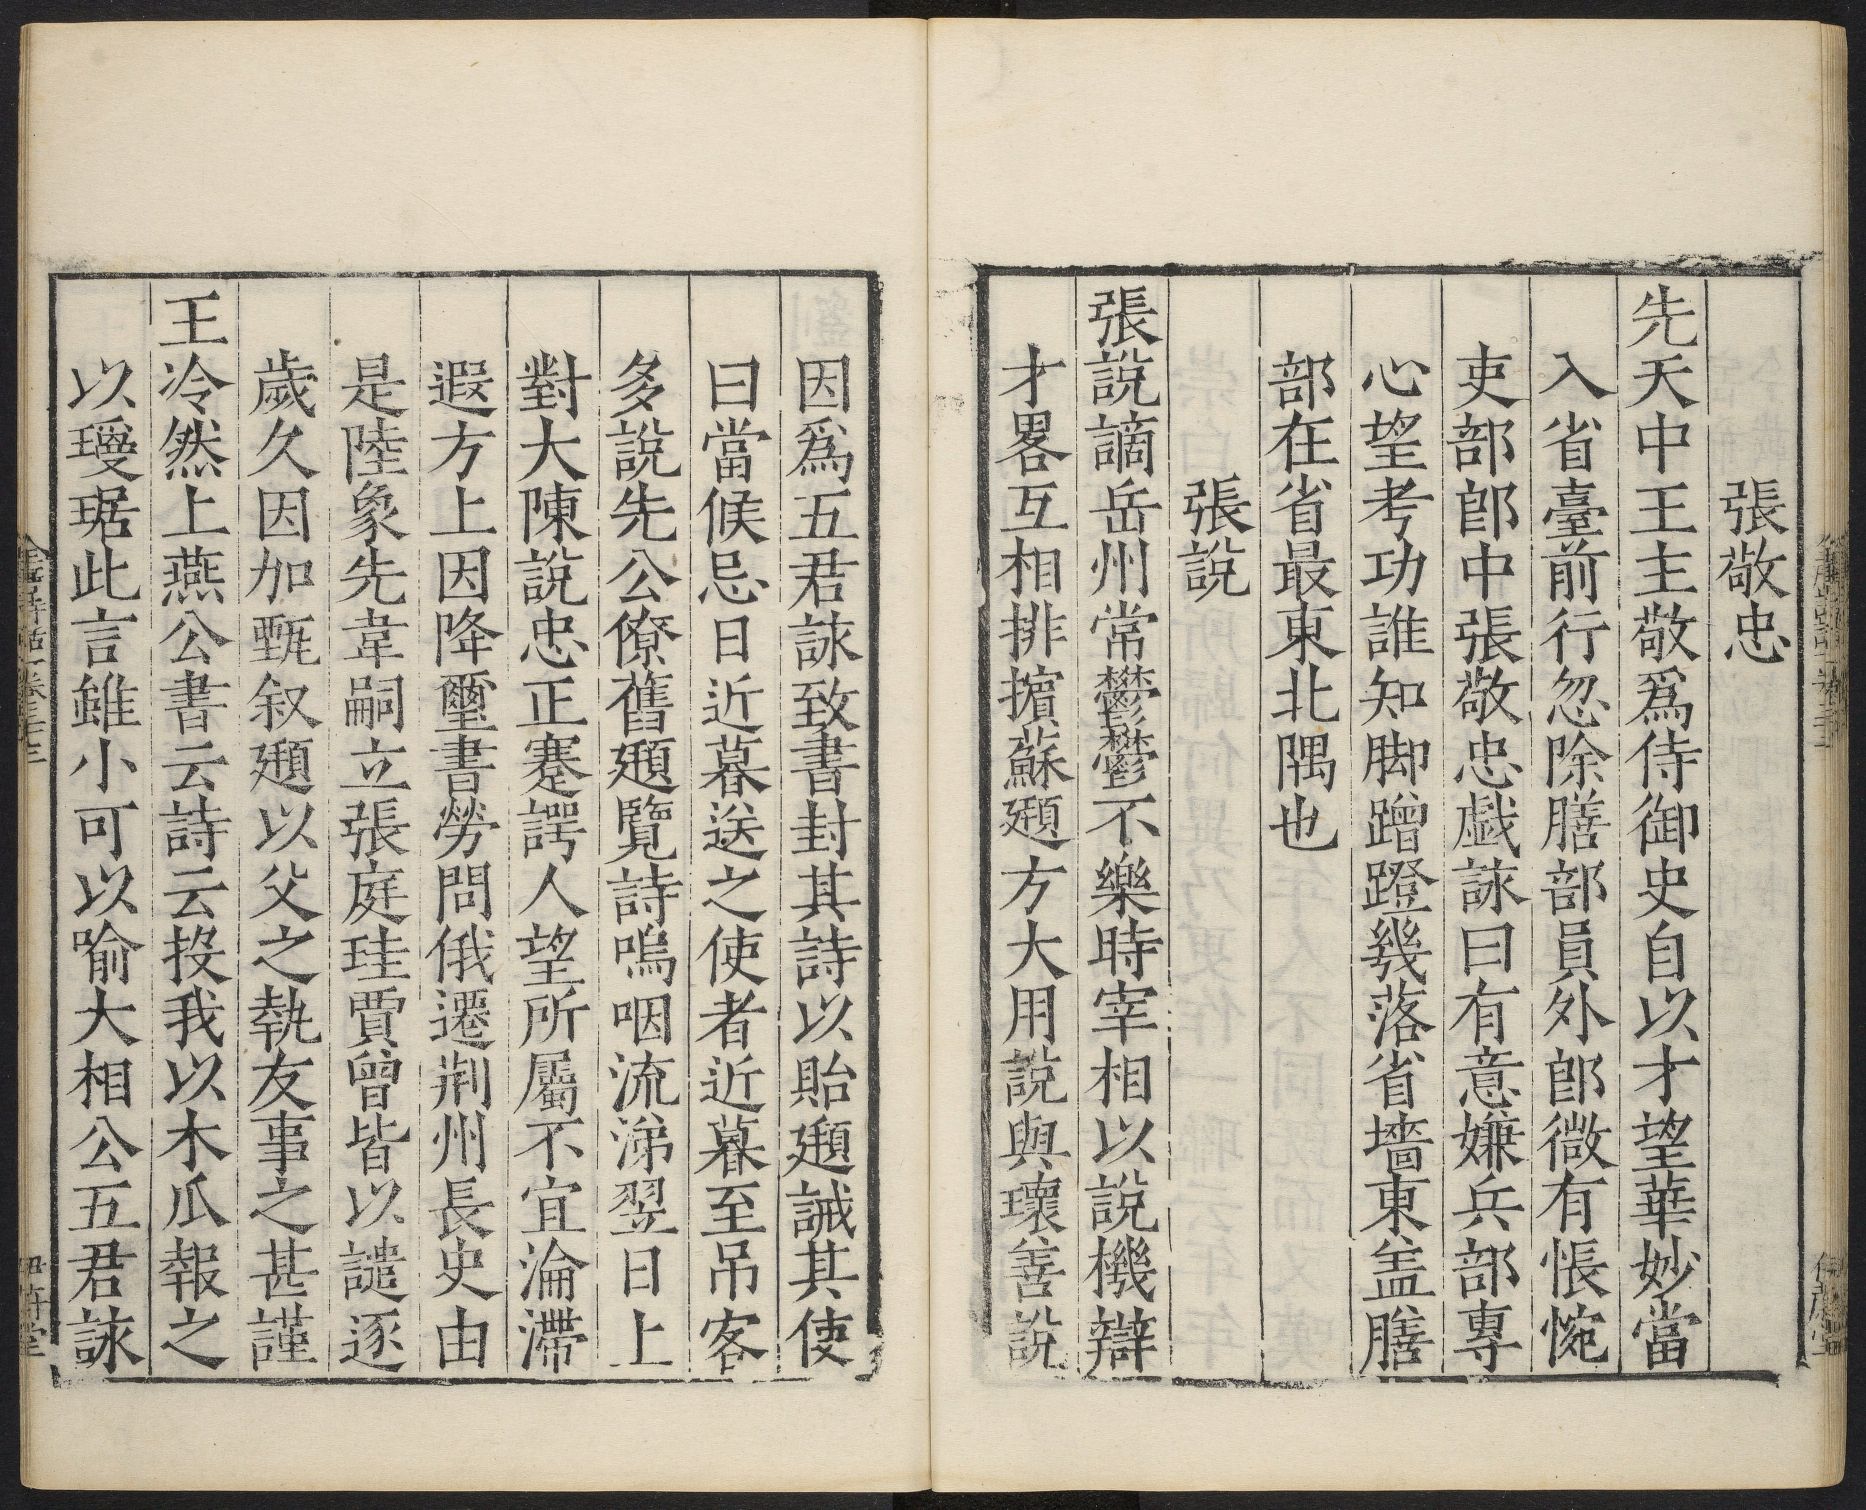 張敬忠
先天中王主敬爲侍御史自以才望華妙當
入省臺前行忽除膳部員外郎微有悵惋
吏部郎中張敬忠戯詠曰有意嫌兵部專
心望考功誰知脚蹭蹬幾落省墻東盖膳
部在省最東北隅也
張說
張說謫岳州常鬱鬱不樂時宰相以說機辯
才畧互相排擯蘇頲方大用說與瓌善說
因爲五君詠致書封其詩以貽頲誡其使
曰當候忌日近暮送之使者近暮至吊客
多說先公僚舊頲覽詩嗚咽流涕翌日上
對大陳說忠正蹇諤人望所屬不宜淪滯
遐方上因降璽書勞問俄遷荆州長史由
是陸象先韋嗣立張庭珪賈曾皆以譴逐
歲久因加甄叙頲以父之執友事之甚謹
王泠然上燕公書云詩云投我以木瓜報之
以瓊琚此言雖小可以喻大相公五君詠